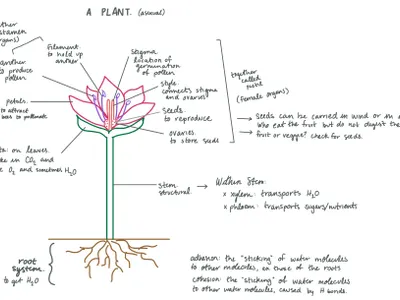 A PLANT. (asexual)
stamen
organs)
anther
to produce
pollen
filament
to hold up
anther
Stigma
location of
germination
of pollen
style
connects stigma
and ovaries
seeds
to reproduce
ovaries
to store seeds
petals
to attract
bees to pollinate
together
called
(female organs)
→ seeds can be carried in wind or in
who eat the fruit but do not digest the
→ fruit or veggie? check for seeds.
on leaves.
in CO2 and
O2 and sometimes H2O
stem
structural
→ Within Stem:
× xylem: transports H2O
× phloem: transports sugars/nutrients
root
system
to get H2O
adhesion: the "sticking" of water molecules
to other molecules, ex those of the roots
cohesion: the "sticking" of water molecules
to other water molecules, caused by H bonds.